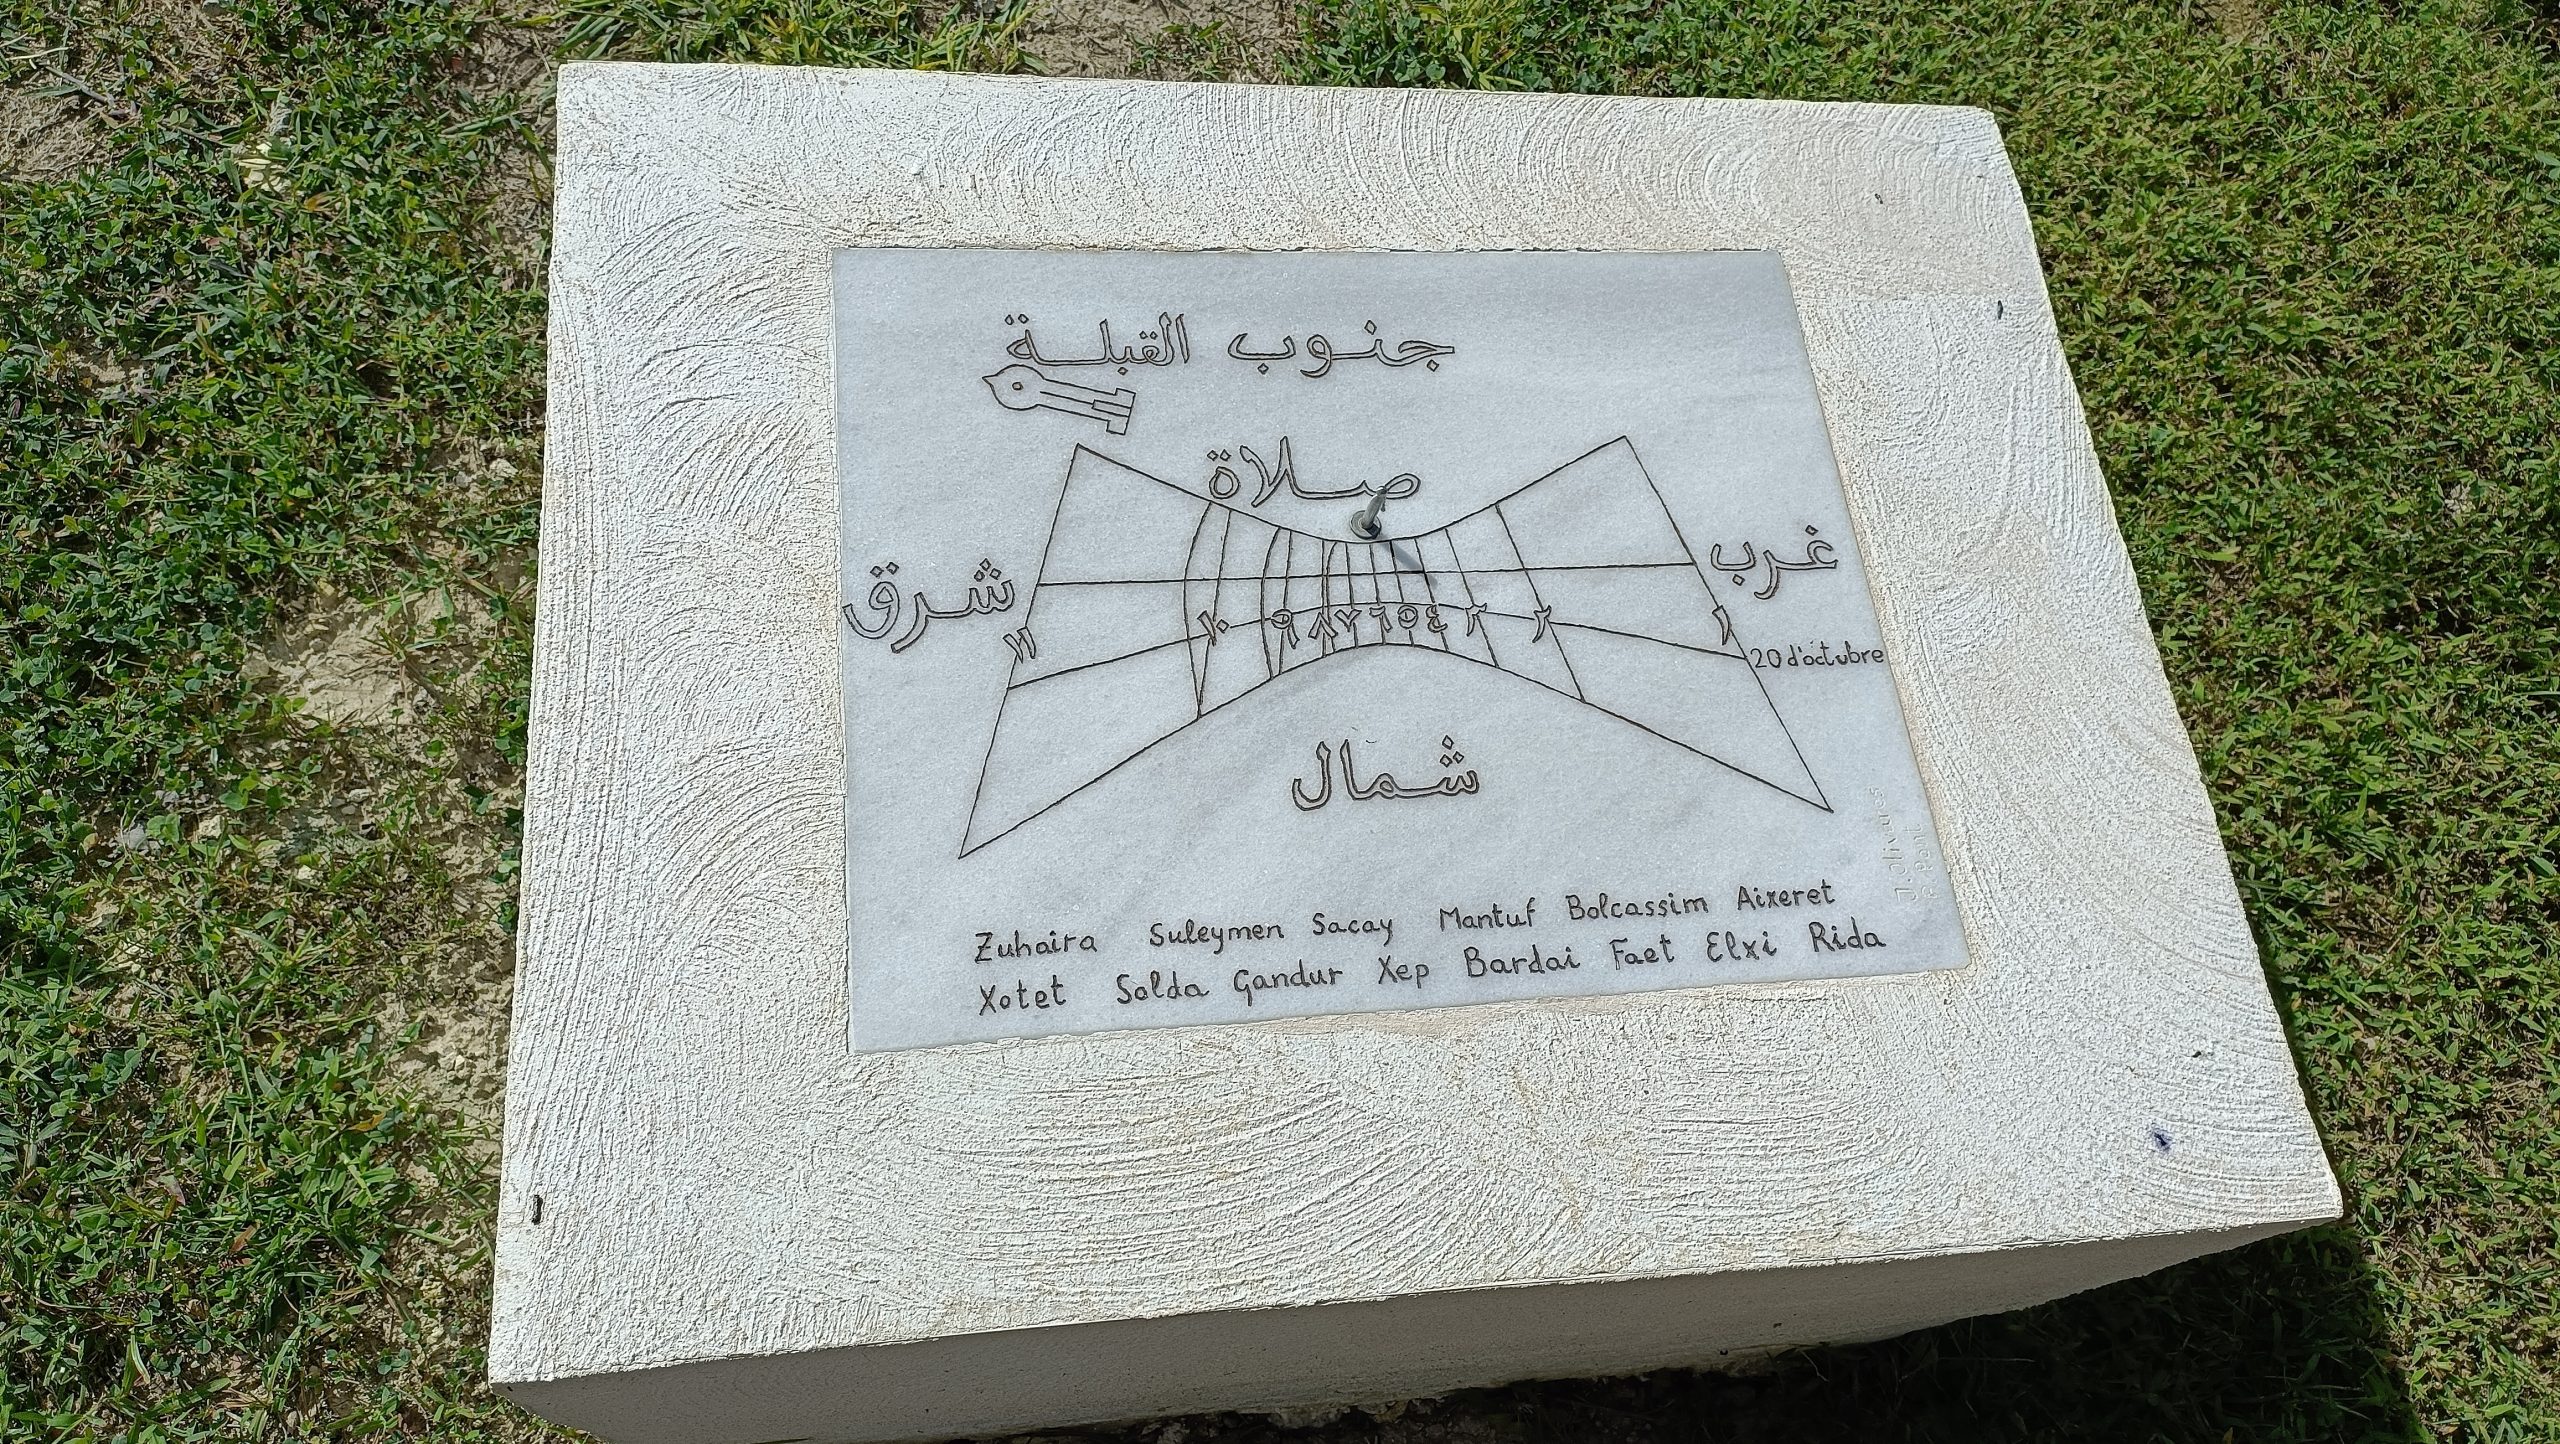 جنوب القبلة
صلاة
شرق
غرب
١١ ١٠ ٩ ٨ ٧ ٦ ٥ ٤ ٣ ٢ ١
20 d'octubre
شمال
Zuhaira Suleymen Sacay Mantuf Bolcassim Aixeret
Xotet Solda Gandur Xep Bardai Faet Elxi Rida
J. Olivares